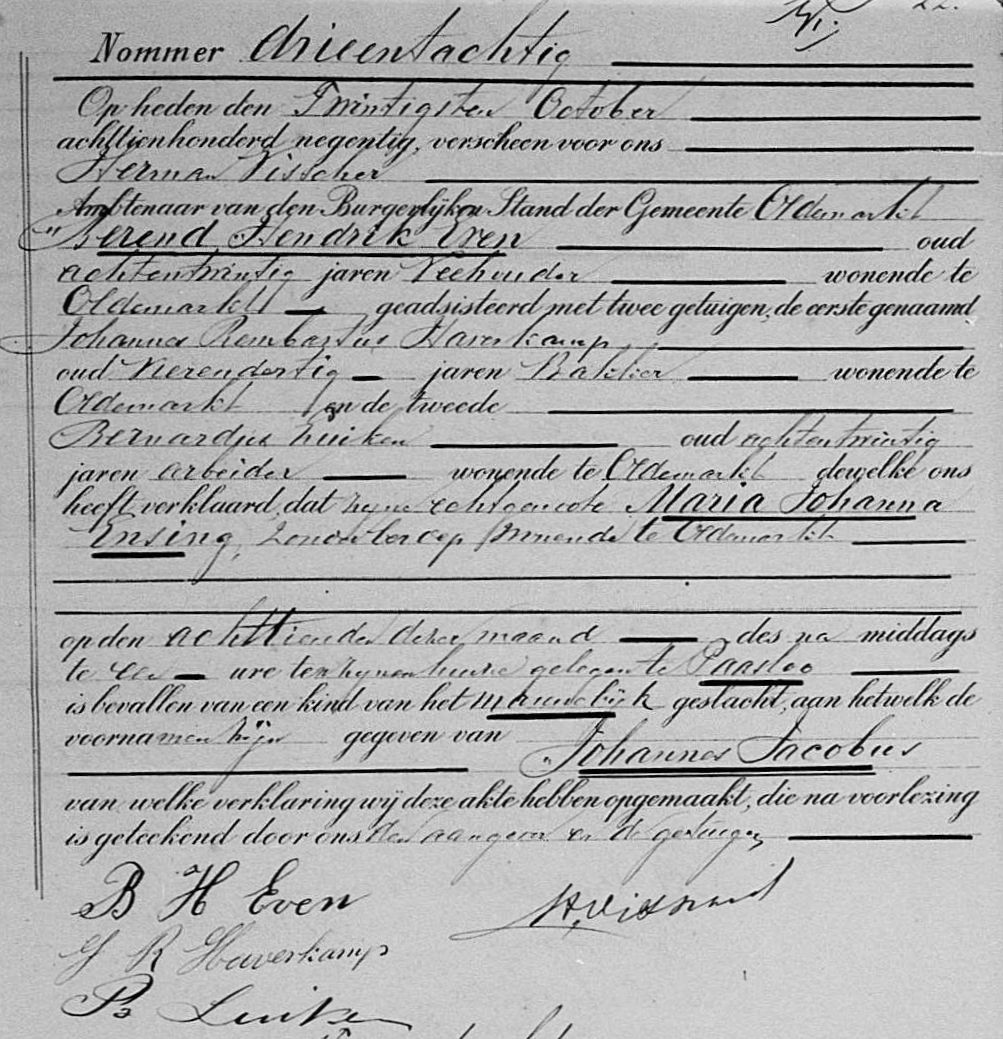 22.
Nommer drieentachtig
Op heden den Twintigsten October
achttienhonderd negentig, verscheen voor ons
Herman Visscher
Ambtenaar van den Burgerlijken Stand der Gemeente Oldemarkt
Berend Hendrik Even oud
achtentwintig jaren Veehouder wonende te
Oldemarkt geadsisteerd met twee getuigen, de eerste genaamd
Johannes Rembartus Haverkamp,
oud Vierendertig jaren Bakker wonende te
Oldemarkt en de tweede
Bernardus Luiken oud achtentwintig
jaren arbeider wonende te Oldemarkt dewelke ons
heeft verklaard, dat zijne echtgenoote Maria Johanna
Ensing, Zonder beroep wonende te Oldemarkt
op den achttienden dezer maand des na middags
te een ure ten zijnen huize gelegen te Paasloo
is bevallen van een kind van het mannelijk geslacht, aan hetwelk de
voornamen zijn gegeven van
Johannes Jacobus
van welke verklaring wij deze akte hebben opgemaakt, die na voorlezing
is geteekend door ons den aangever en de getuigen
B H Even
H. Visscher
J R Haverkamp
B Luiken